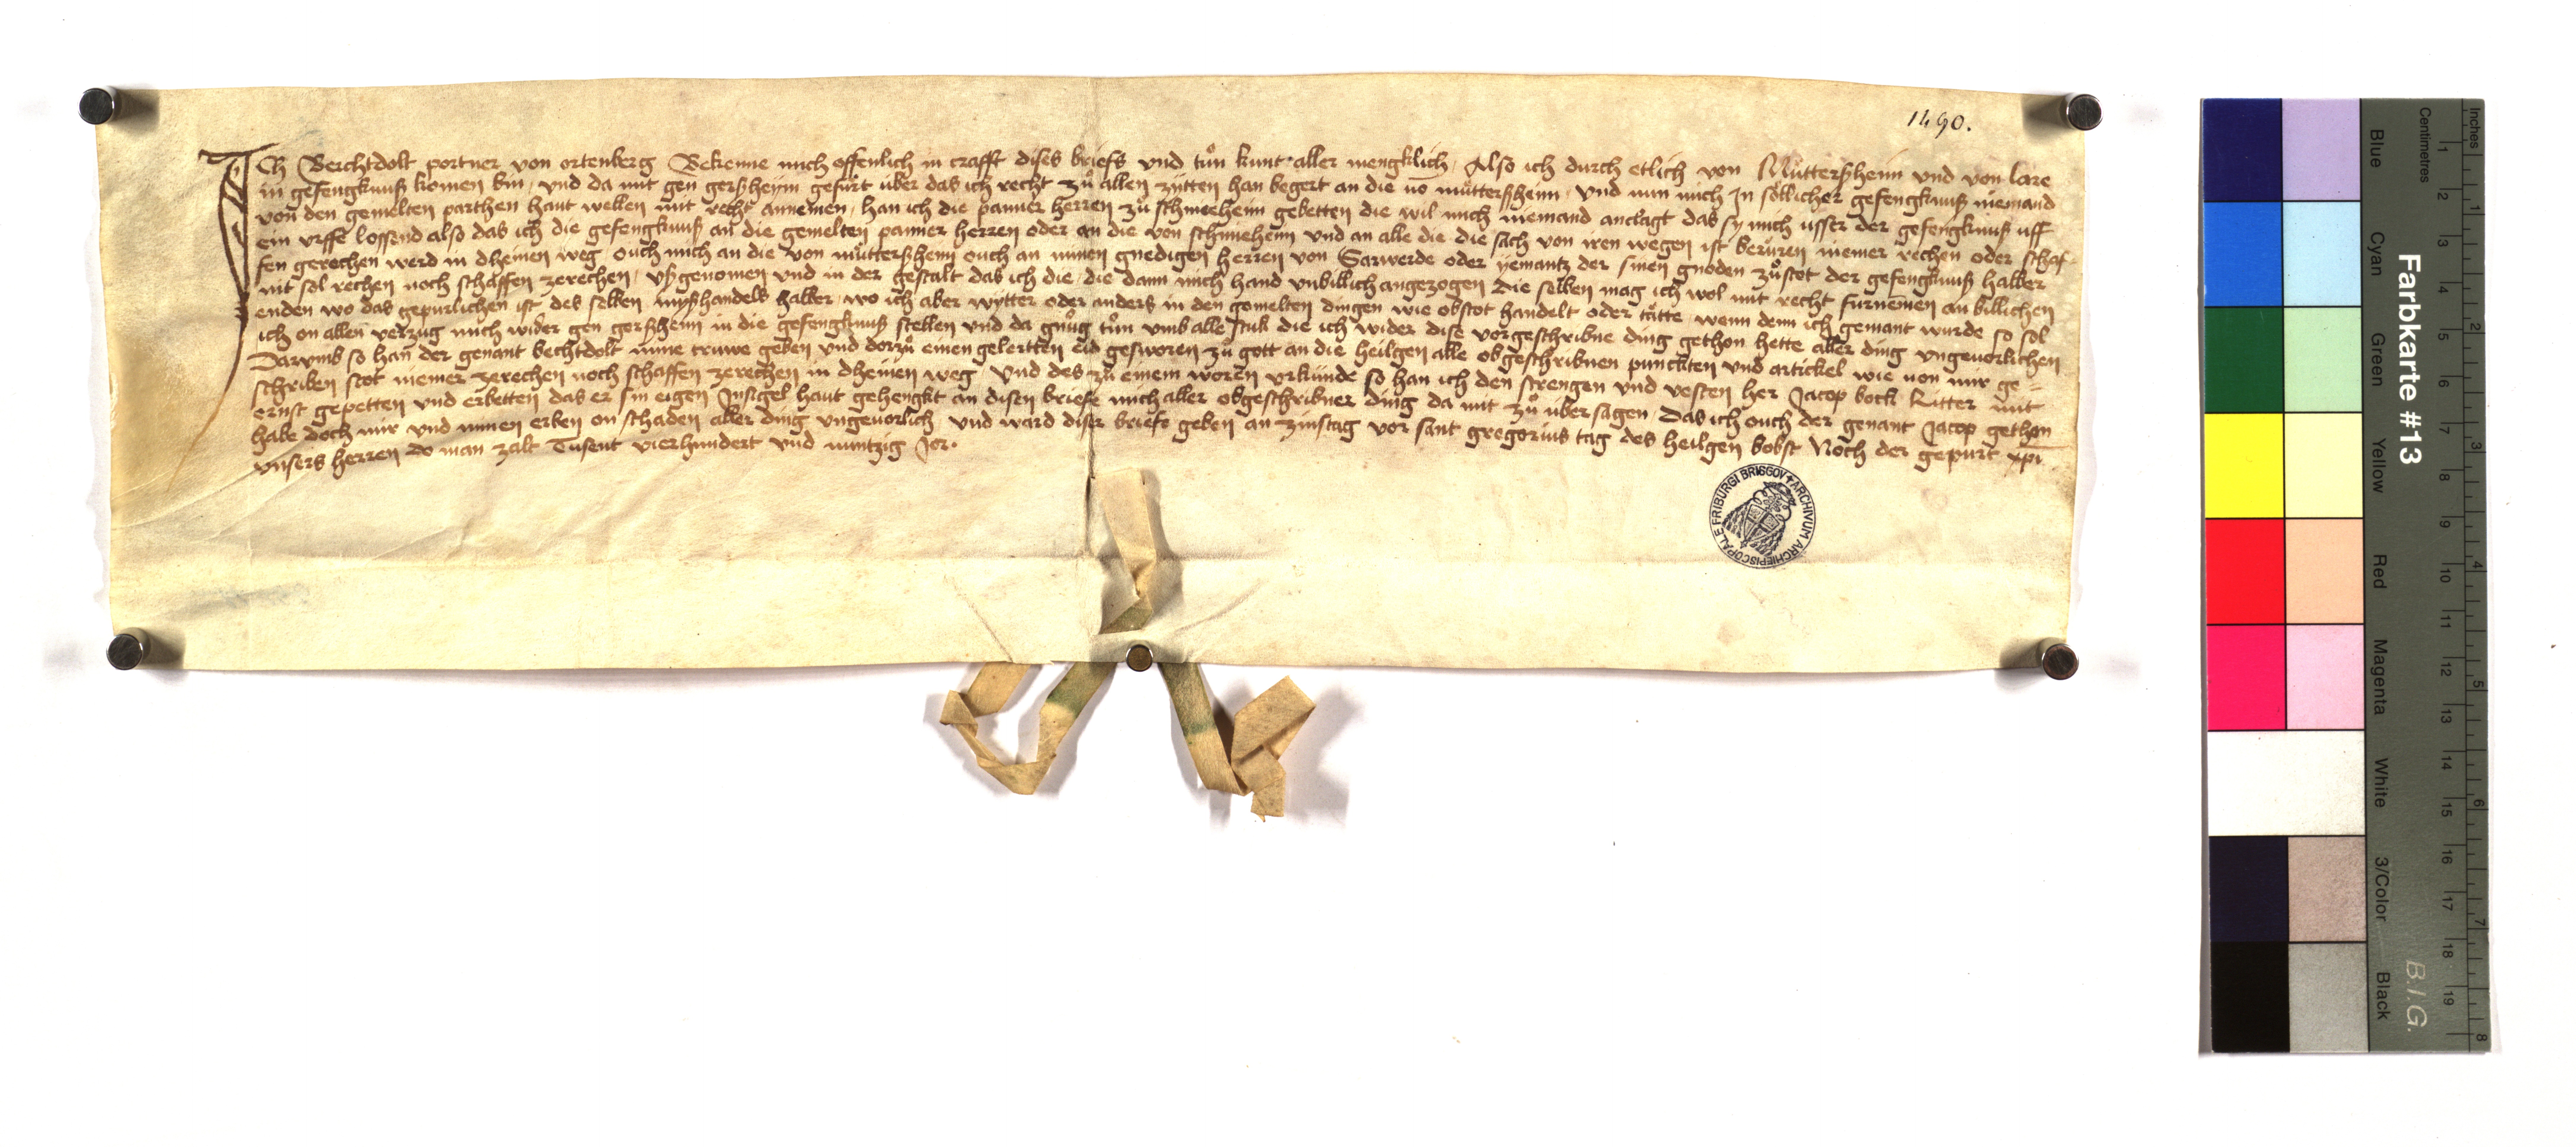 1490.
Ich Berchtdolt portner von ortenberg Bekenne mich offenlich in crafft dises briefs vnd tůn kunt aller mengklich / Also ich durch etlich von Můttersheim vnd von lare
in gefengknuß komen bin / vnd da mit gen gerßheym gefůrt über das ich recht zů allen zytten han begert an die vō můtterßheim / vnd nun mich In sőllicher gefengknuß niemand
von den gemelten parthen haut wellen mit recht annemen / han ich die panner herren zů schmieheim gebetten die wil mich niemand anclagt das sy mich usser der gefengknuß uff
ein vrffe lossend also das ich die gefengknuß an die gemelten panner herren oder an die von schmieheim vnd an alle die die sach von iren wegen ist berůren niemer rechen oder schaf-
fen gerochen werd in dheinen weg / ouch mich an die von můtterßheim ouch an minen gnedigen herren von Sarwerde oder yemantz der sinen gnoden zůstot der gefengknuß halber
nit sol rechen noch schaffen zerechen / vßgenomen vnd in der gestalt das ich die / die dann mich hand vnbillich angezogen die selben mag ich wol mit recht furnemen an billichen
enden wo das gepurlichen ist des selben mißhandels halber / wo ich aber wytter oder anders in den gemelten dingen wie obstot handelt oder tätte / wenn denn ich gemant wurde so sol
ich on allen verzug mich wider gen gerßheim in die gefengknuß stellen vnd da gnůg tůn vmb alle stuk die ich wider dise vorgeschribne ding gethon hette aller ding vngeuorlichen
Darvmb so han der genant bechtdolt mine truwe geben vnd dorzů einen gelertten eid gesworen zů gott an die heilgen alle obgeschribnen punckten vnd artickel wie von mir ge-
schriben stot niemer zerechen noch schaffen zerechen in dheinen weg / Vnd des zů einem woren vrkunde so han ich den strengen vnd vesten her Jacop bock Ritter mit
ernst gepetten vnd erbetten das er sin eigen Insigel haut gehengkt an disen briefe mich aller obgeschribner ding da mit zů übersagen / Das ich ouch der genant Jacop gethon
habe doch mir vnd minen erben on schaden aller ding vngeuorlich / vnd ward diser briefe geben an zinstag vor sant gregorius tag des heilgen bobst Noch der gepurt xpī
vnsers herren do man zalt Tusent vierhundert vnd nuntzig Jor.
ARCHIVUM ARCHIEPISCOPALE FRIBURGI BRISGOV
Farbkarte #13
B.I.G.
Inches
Centimetres
1 2 3 4 5 6 7 8 9 10 11 12 13 14 15 16 17 18 19
1 2 3 4 5 6 7 8
Blue
Cyan
Green
Yellow
Red
Magenta
White
3/Color
Black